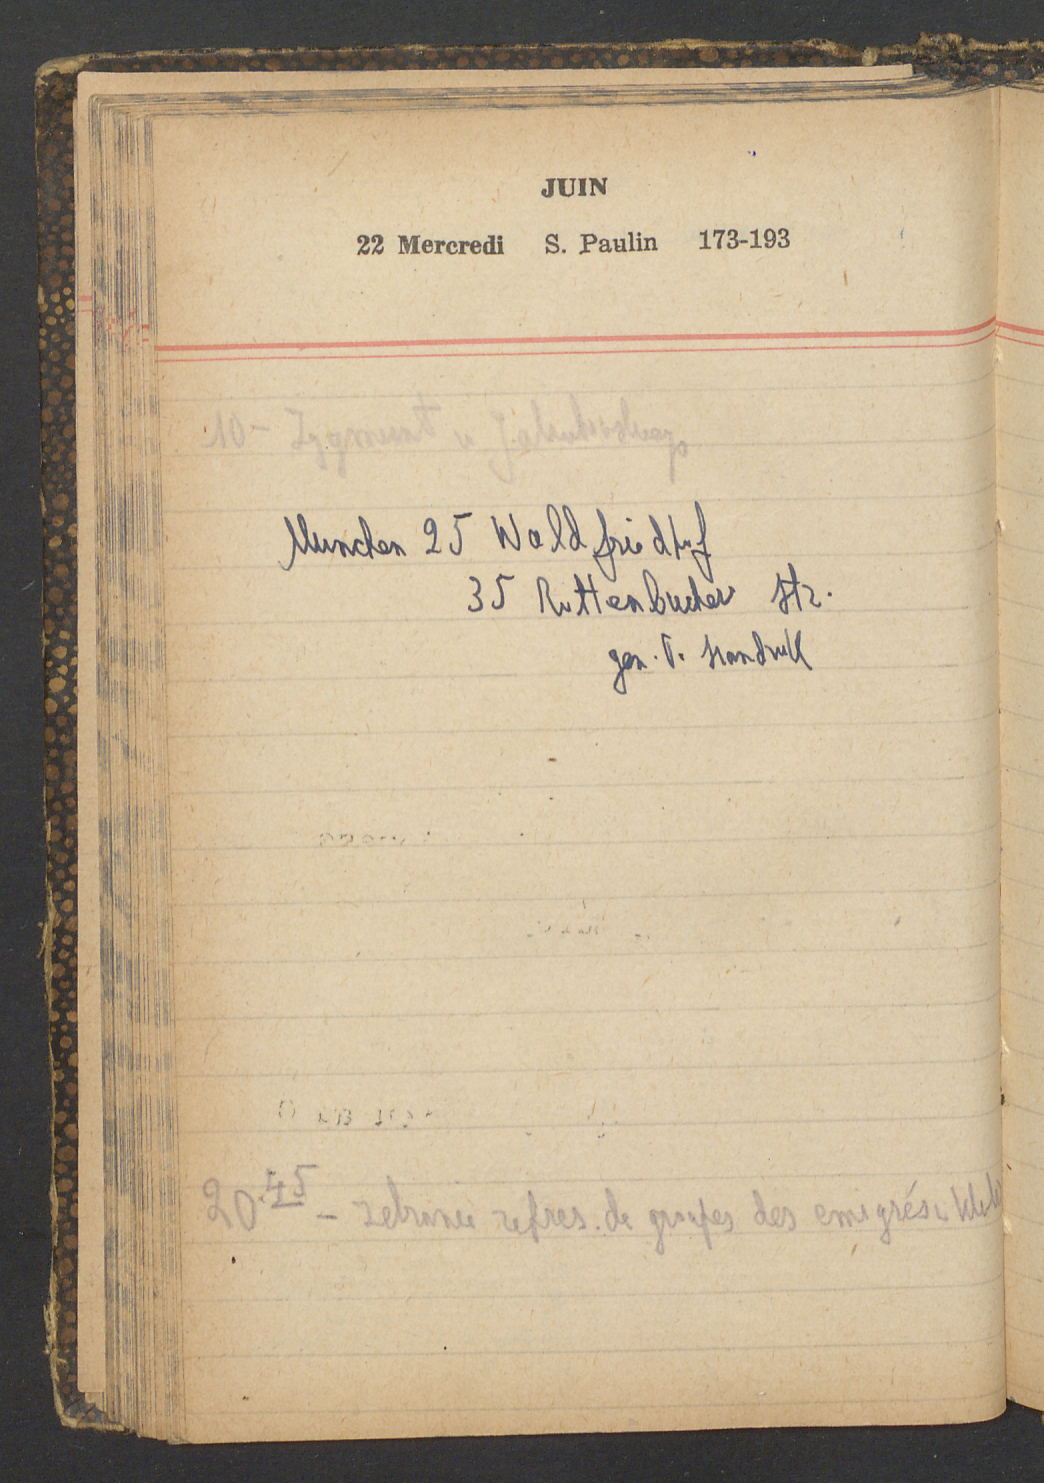 JUIN
22 Mercredi S. Paulin 173-193
10 - Zygmunt u
Munchen 25 Waldfriedhof
35 Rottenbucher Str.
gen. P. Shandruk
20.45 - zebranie repres. de groupes des emigrés